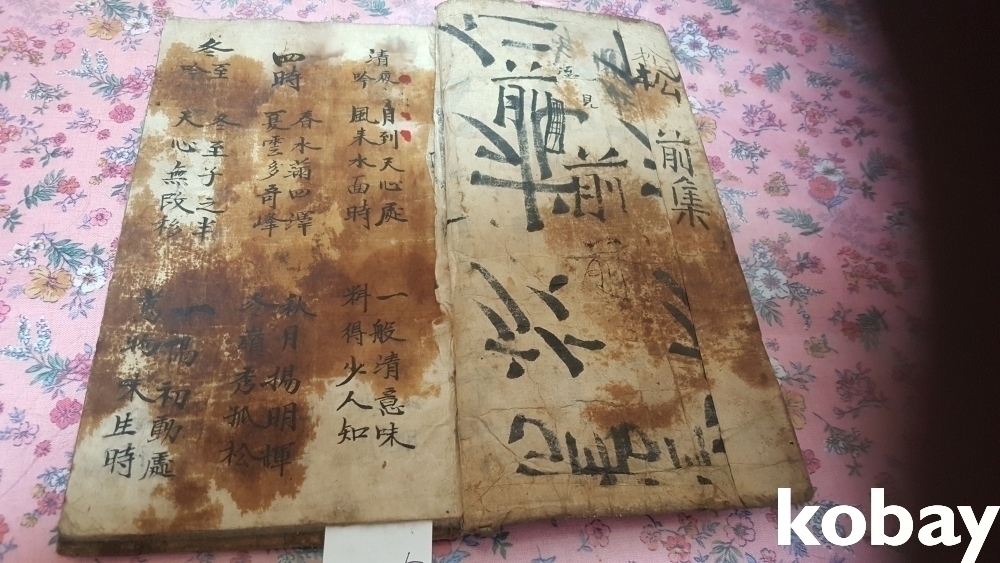 松
前集
見
前
前
前
清夜吟
月到天心處
風来水面時
一般清意味
料得少人知
四時
春水滿四澤
夏雲多奇峰
秋月揚明輝
冬嶺秀孤松
冬至吟
冬至子之半
天心無改移
一陽初動處
萬物味生時
kobay